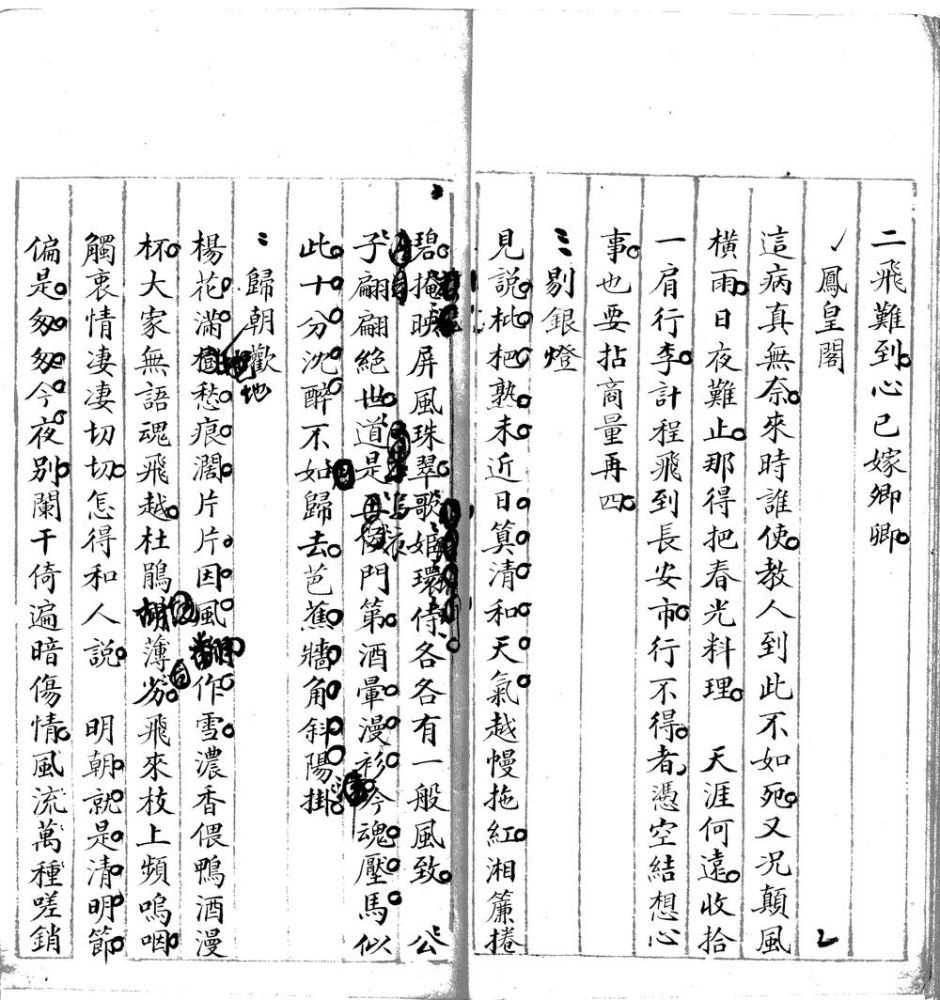 二飛難到心已嫁卿卿
鳳皇閣
這病真無奈來時誰使教人到此不如死又况顛風
橫雨日夜難止那得把春光料理　天涯何遠收拾
一肩行李計程飛到長安市行不得者憑空結想心
事也要拈商量再四
剔銀燈
見說枇杷熟未近日算清和天氣越幔拖紅湘簾捲
碧掩映屏風珠翠歌姬環侍各各有一般風致　公
子翩翩絕世道是門第酒暈漫衫今魂壓馬似
此十分沈醉不如歸去芭蕉牆角斜陽掛
歸朝歡
地
楊花滿愁痕濶片片因風翻作雪濃香偎鴨酒漫
杯大家無語魂飛越杜鵑薄劣飛來枝上頻嗚咽
觸衷情凄凄切切怎得和人說　明朝就是清明節
偏是匆匆今夜別闌干倚遍暗傷情風流萬種嗟銷